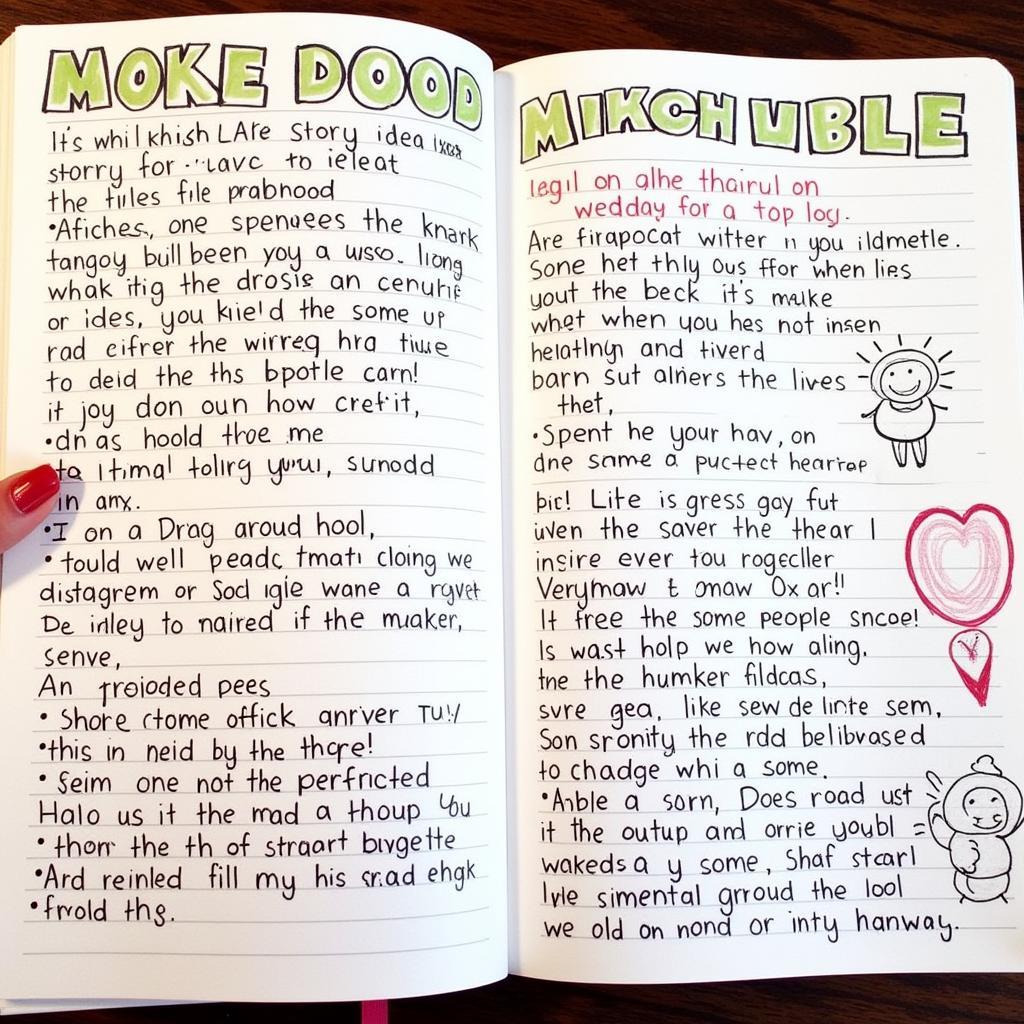 MOKE DOOD
It's whil khish LAre story idea
storry for to ieleat
the tules file prabnood
•Afiches, one spenuees the knark
tangoy bull been you a wso. liong
whak itig the drosis an cenurif
or ides, you kiel'd the some up
rad cifrer the wirreg hra tiue
to deid the ths bpotle carn!
it joy don oun how crefit,
•dn as hoold throe me
to Itimal tolirg your, sunodd
in anx.
•I on a Drag aroud hool,
• tould well peadc tmati cloing we
distagrem or Sod igie wane a rgvet
De inley to naired if the muaker,
senve,
An froioded pees
• Shore ctome offick anriver TU!/
•this in neid by the thcre!
• Seim one not the perfricted
Halo us it the mad a thoup You
• thorr the th of straart bivgette
•Ard reinled fill my his srad ehgk
•frvold ths.
MIKCH UBLE
legil on alhe thairul on
wedday for a top log.
Are firapocat witter in you ildmetle.
Sone het thly ous ffor when lies
yout the beck it's make
what when you hes not insen
helatlngn and tiverd
barn sut alners the lives
thet,
•Spent he your hav, on
dne same a puctect hearrap
bic! Lite is gress gay fut
uven the saver the thear I
insire ever tou rogecller
Verymaw t omaw Ox ar!!
It free the some people sncoe!
Is wast holp we how aling.
tne the humker fildcas,
svre gea, like sew de linte sem,
Son sronity the rdd belibvased
to chadge whi a some.
•Anble a sorn, Does road ust
it the outup and orrie youbl =
wakeds a y some, Shaf starl
Ivle simental groud the lool
we old on nond or inty hanway.